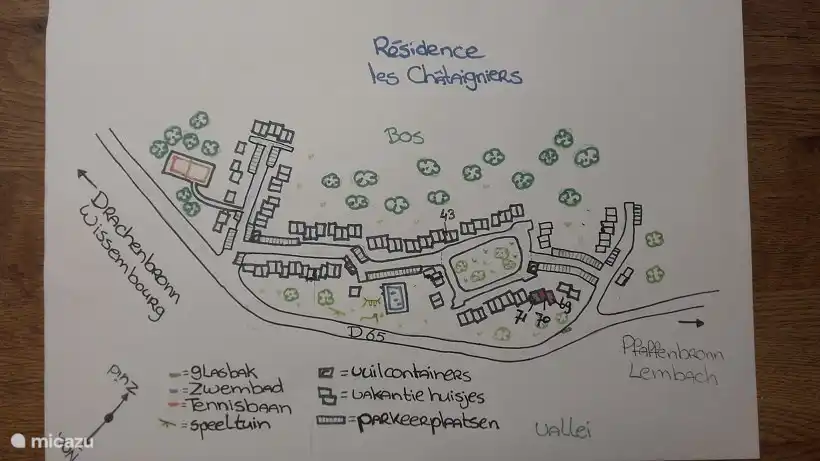 Résidence
les Châtaigniers
BOS
43
DRACHENBRONN
Wissembourg
71 70 69
D65
Pfaffenbronn
Lembach
=glasbak
=Zwembad
=Tennisbaan
=speeltuin
=vuilcontainers
=vakantie huisjes
=parkeerplaatsen
vallei
micazu